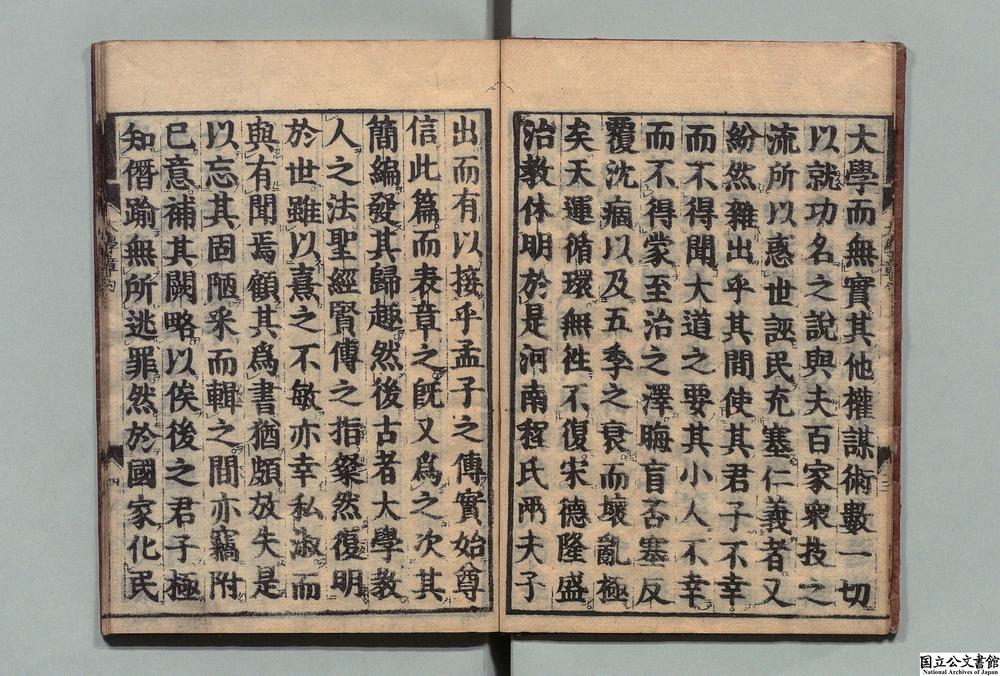 大學而無實其他權謀術數一切
以就功名之說與夫百家衆技之
流所以惑世誣民充塞仁義者又
紛然雜出乎其間使其君子不幸
而不得聞大道之要其小人不幸
而不得蒙至治之澤晦盲否塞反
覆沈痼以及五季之衰而壞亂極
矣天運循環無徃不復宋德隆盛
治教休明於是河南程氏兩夫子
出而有以接乎孟子之傳實始尊
信此篇而表章之旣又爲之次其
簡編發其歸趣然後古者大學教
人之法聖經賢傳之指粲然復明
於世雖以熹之不敏亦幸私淑而
與有聞焉顧其爲書猶頗放失是
以忘其固陋釆而輯之間亦竊附
己意補其闕略以俟後之君子極
知僭踰無所逃罪然於國家化民
国立公文書館
National Archives of Japan